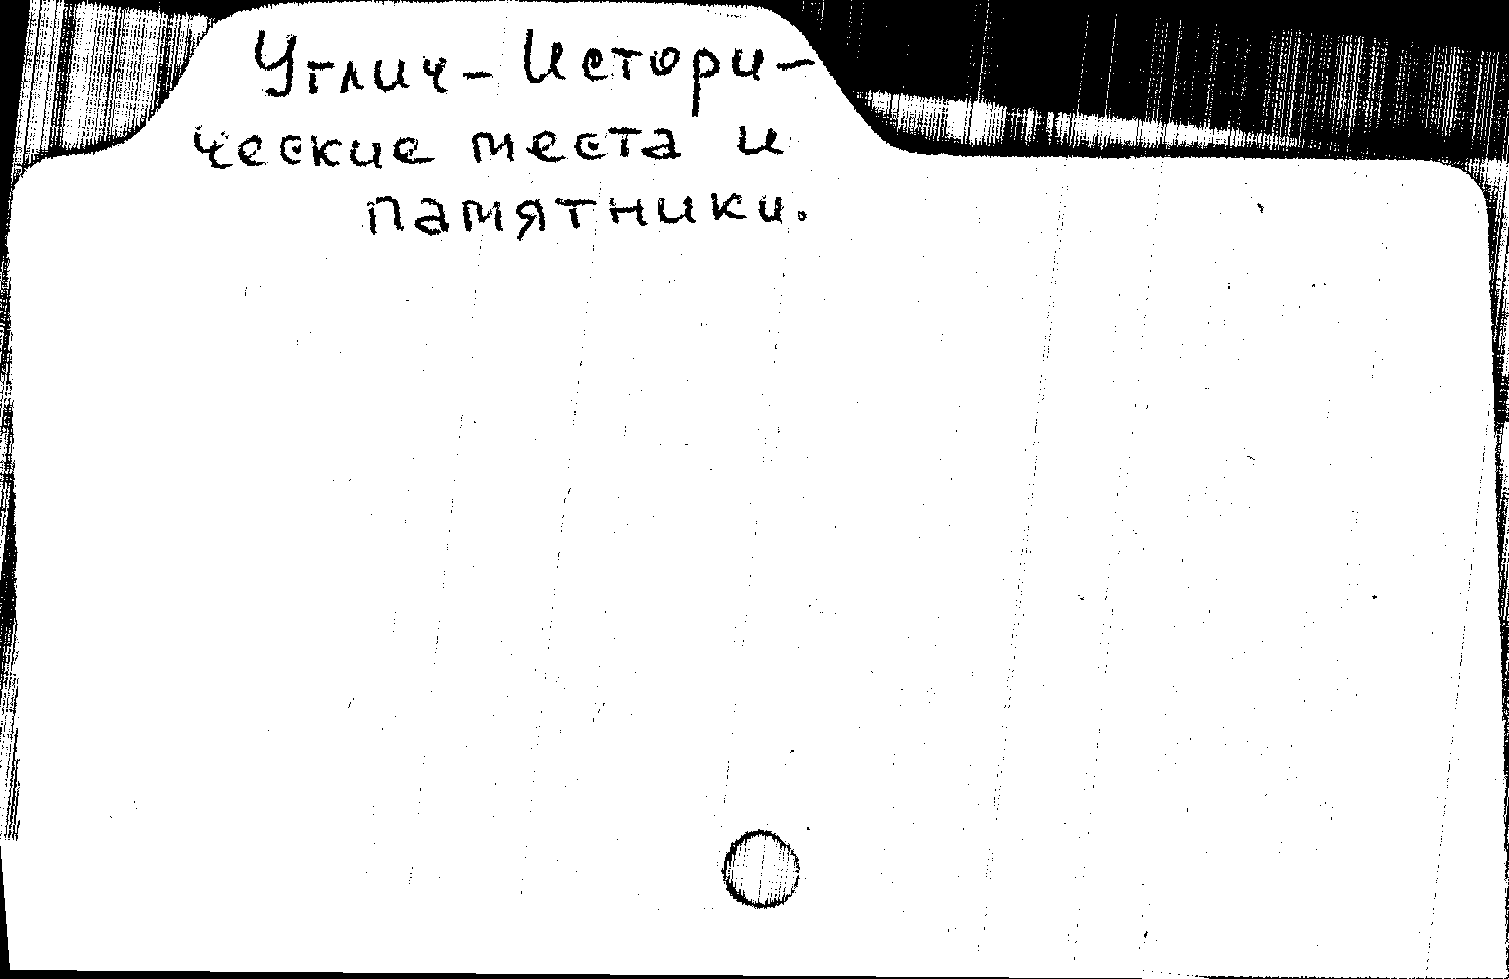 Углич - Истори-
ческие места и
памятники.